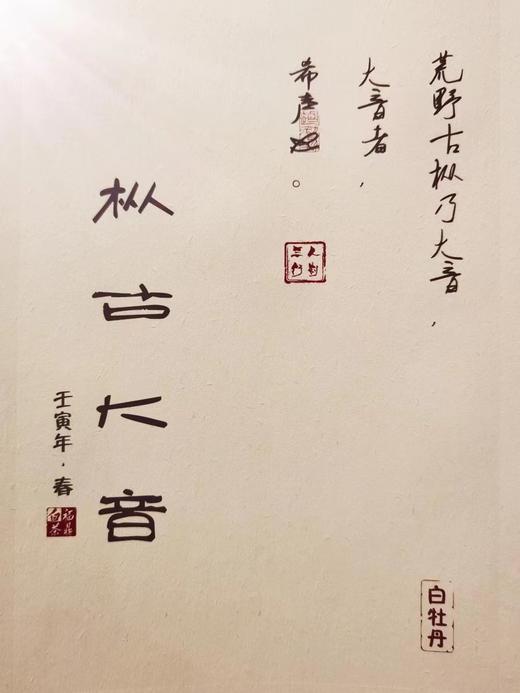 荒野古枞乃大音，
大音者，
希声也。
枞古大音
壬寅年·春
福鼎白茶
白牡丹